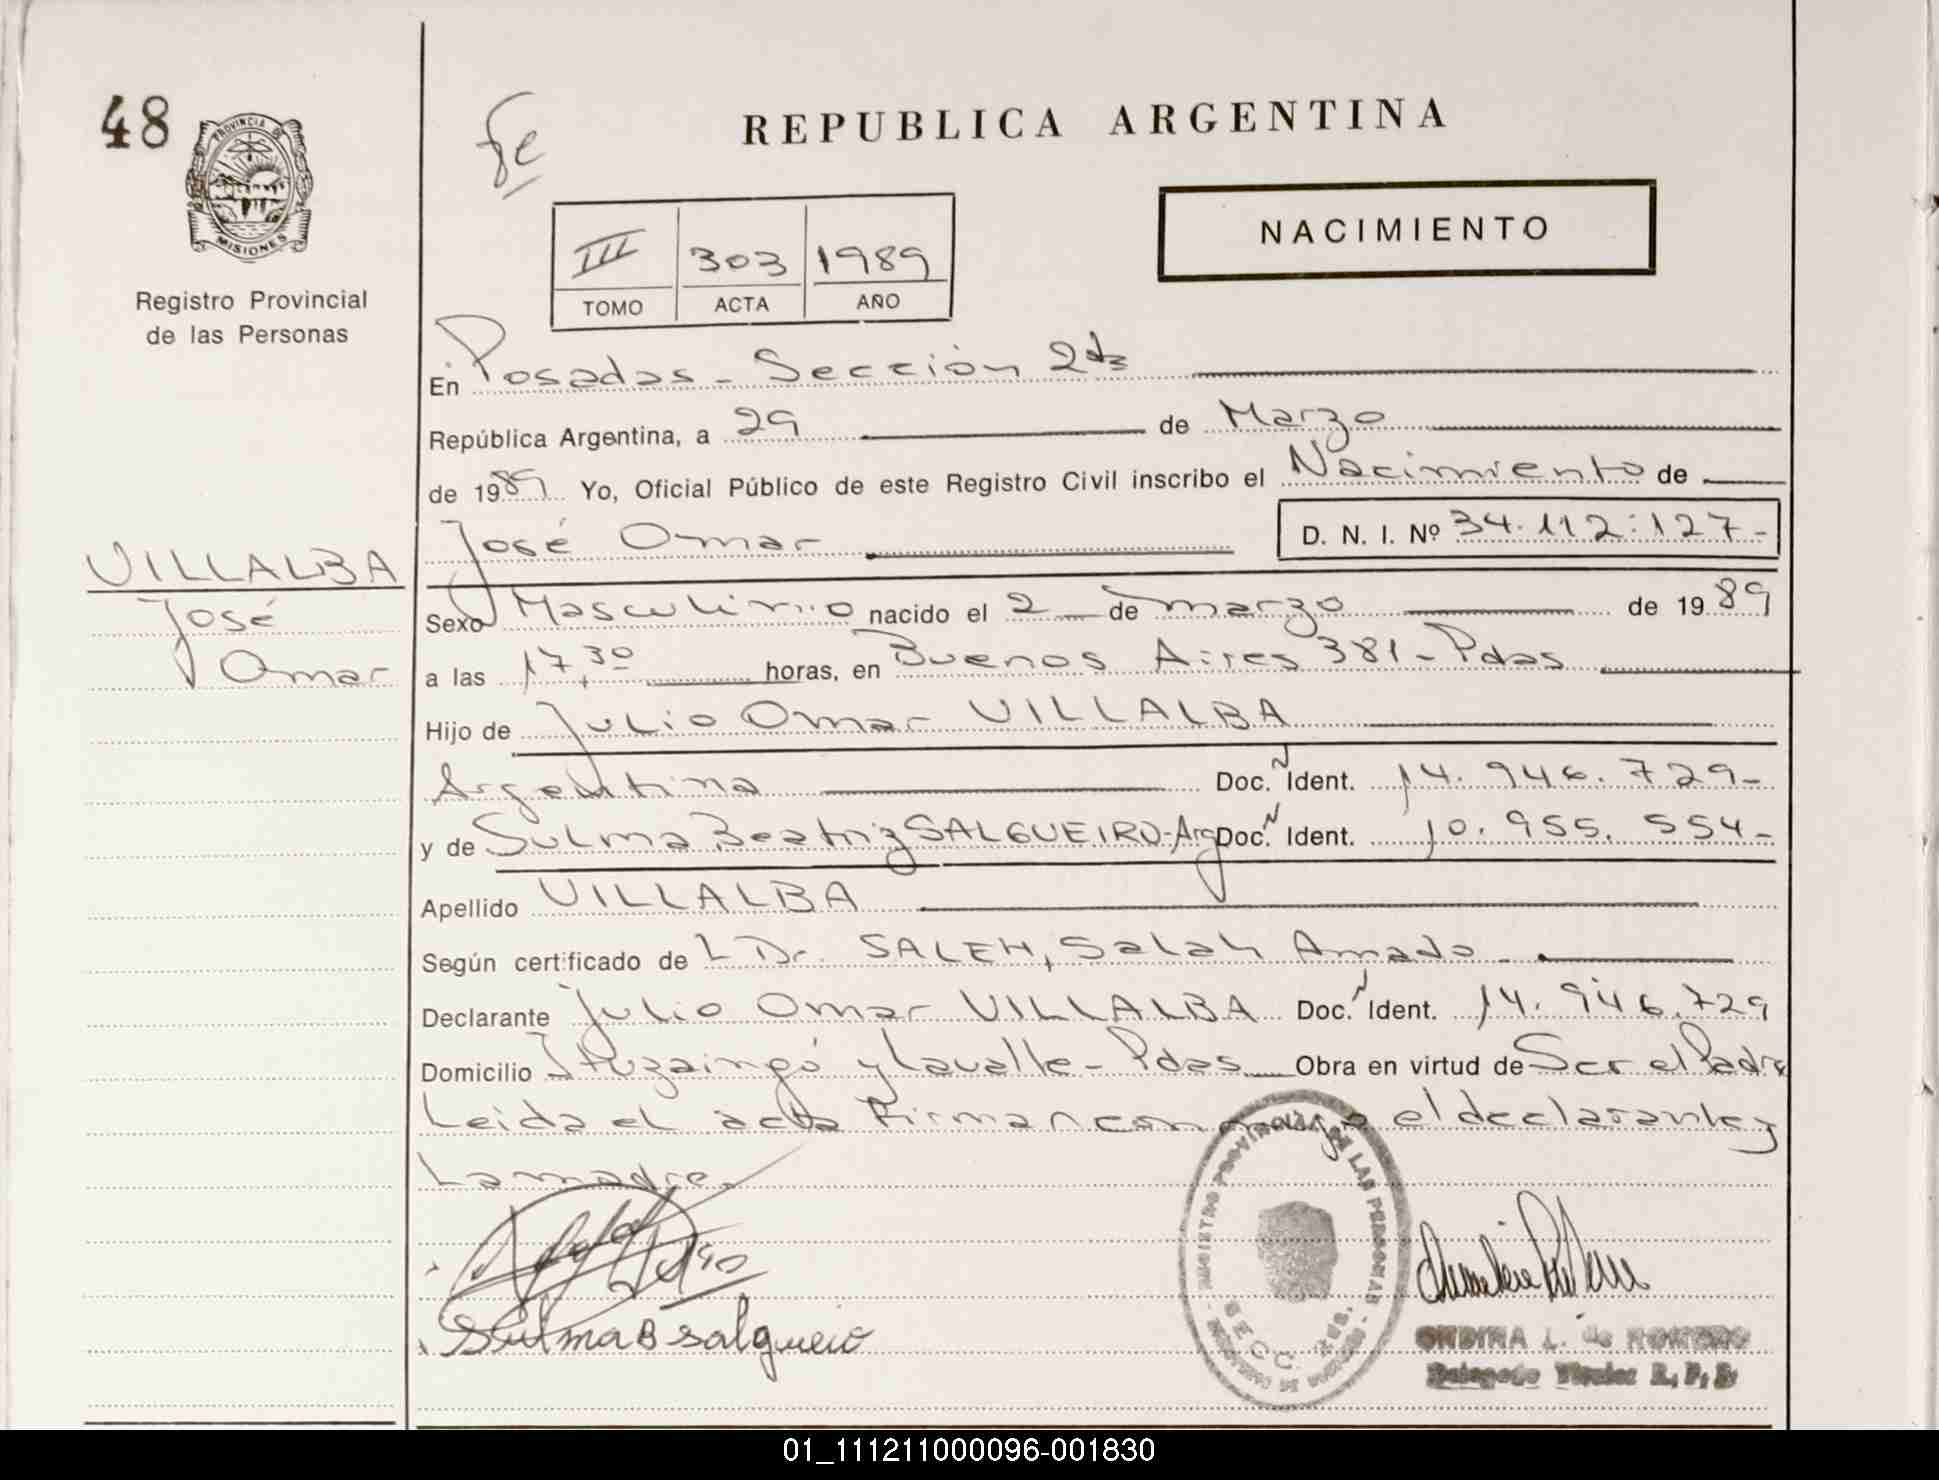 48
PROVINCIA DE
MISIONES
Registro Provincial
de las Personas
REPUBLICA ARGENTINA
NACIMIENTO
III 303 1989
TOMO ACTA AÑO
En Posadas - Sección 2da
República Argentina, a 29 de Marzo
de 1989 Yo, Oficial Público de este Registro Civil inscribo el Nacimiento de
José Omar D. N. I. Nº 34.112.127-
VILLALBA
José
Omar
Sexo Masculino nacido el 2 de marzo de 1989
a las 17,30 horas, en Buenos Aires 381 - Pdas
Hijo de Julio Omar VILLALBA
Argentina Doc. Ident. 14.946.729-
y de Sulma Beatriz SALGUEIRO-Arg Doc. Ident. 10.955.554-
Apellido VILLALBA
Según certificado de L Dr. SALEH, Salah Amado
Declarante Julio Omar VILLALBA Doc. Ident. 14.946.729
Domicilio Ituzaingó y Lavalle - Pdas Obra en virtud de Ser el Padre
Leida el acta firman conmigo el declarante y
La madre.
Sulma B Salgueiro
REGISTRO PROVINCIAL DE LAS PERSONAS
SECC. 2da.
ONDINA L. de ROMERO
Delegado Titular R. P. P.
01_111211000096-001830